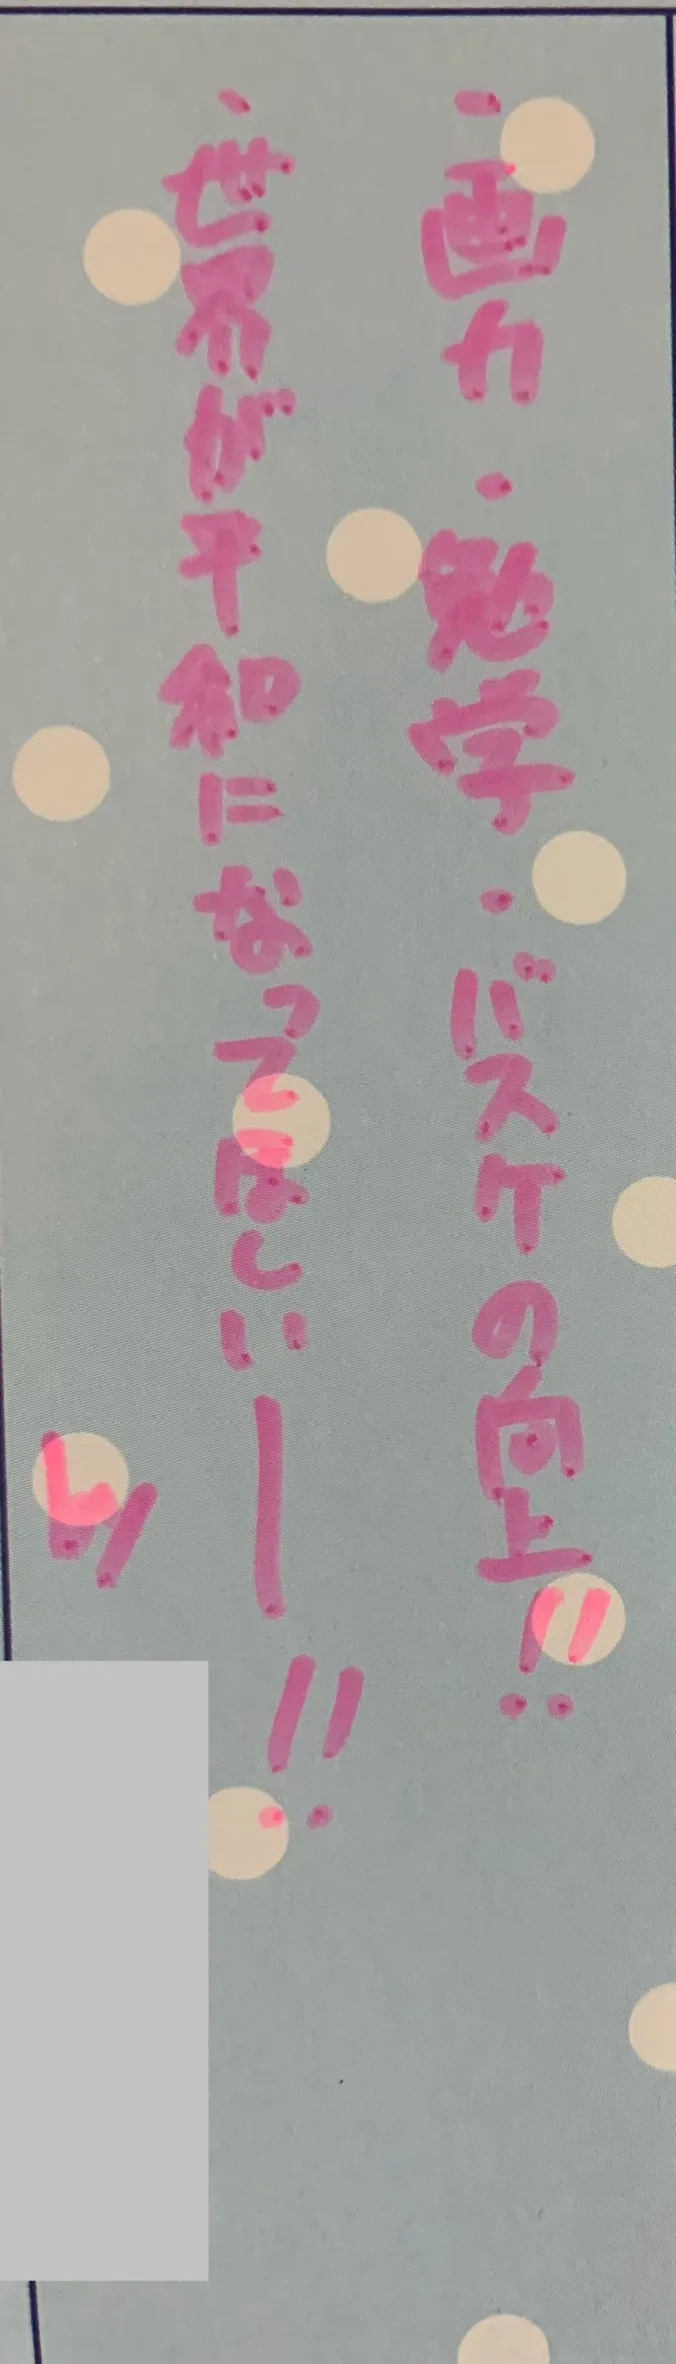 ・画力・勉学・バスケの向上!!
・世界が平和になってほしいー!!